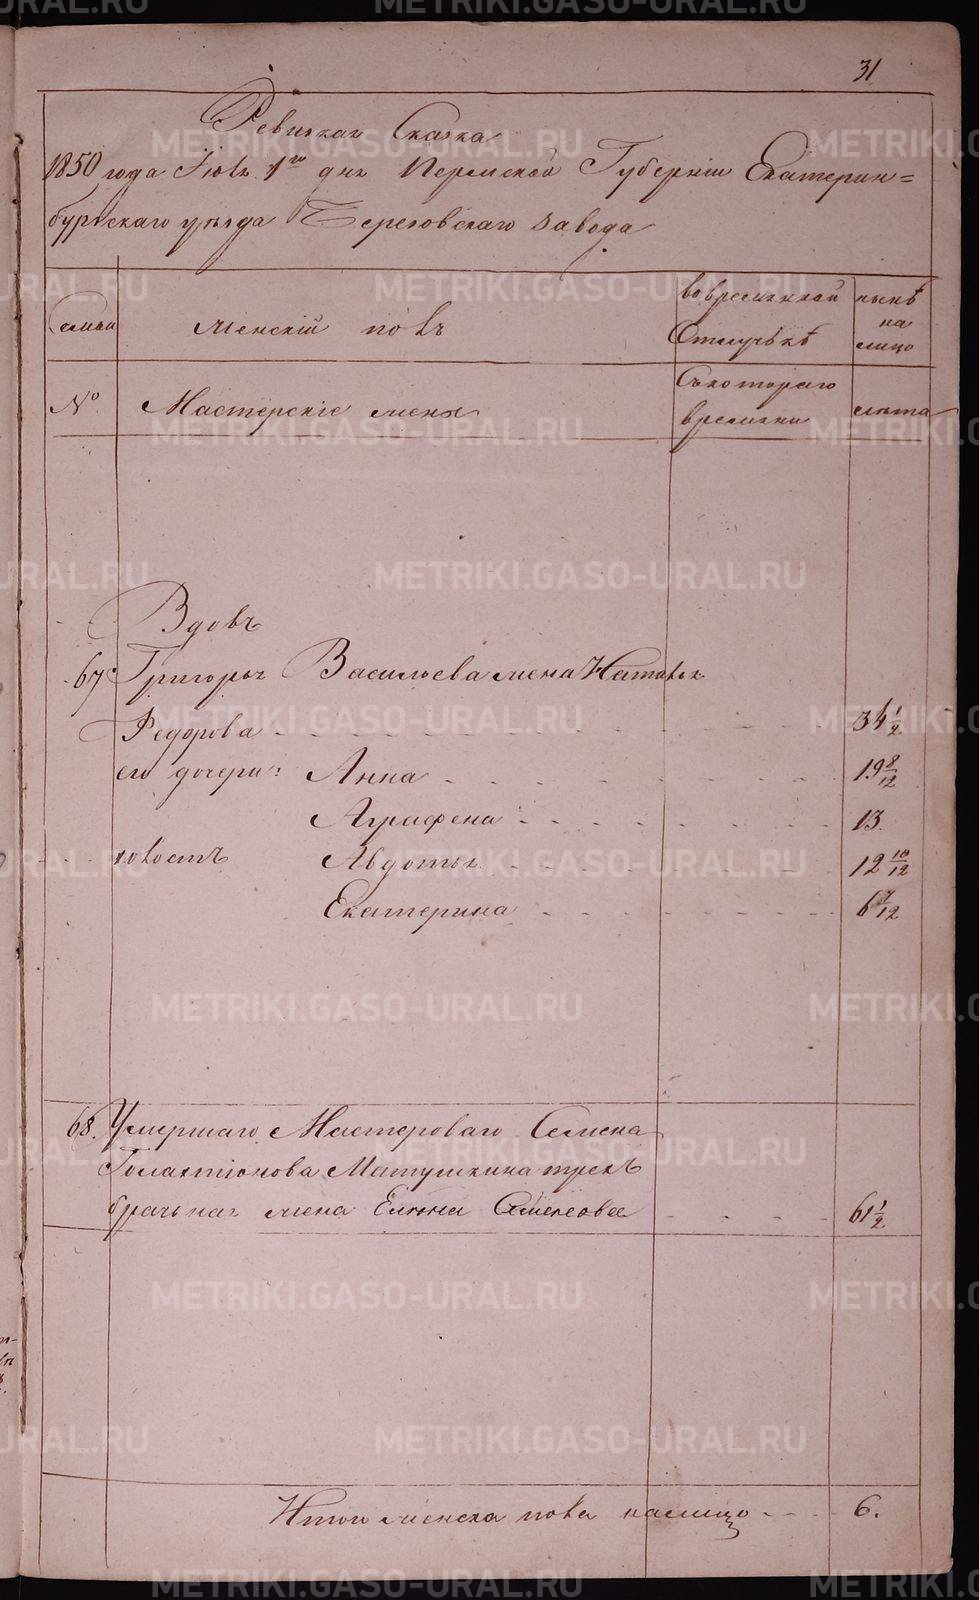 31
Ревизская Сказка
1850 года Іюля 1го дня Пермской Губерніи Екатерин=
бургскаго уѣзда Березовскаго завода
Семьи
женскій полъ
во временной
Отлучкѣ
нынѣ
на
лицо
№
Мастерскіе жены
Съ котораго
времени
лѣта
Вдовъ
67 Григорья Васильева жена Наталья
Федорова 34 1/2
его дочери: Анна 19 8/12
Аграфена 13
холостъ Авдотья 12 10/12
Екатерина 6 7/12
68. Умершаго Мастероваго Семена
Галахтіонова Матушкина трех
брачьная жена Елена 61 1/2
Итого женска пола налицо 6.
METRIKI.GASO-URAL.RU